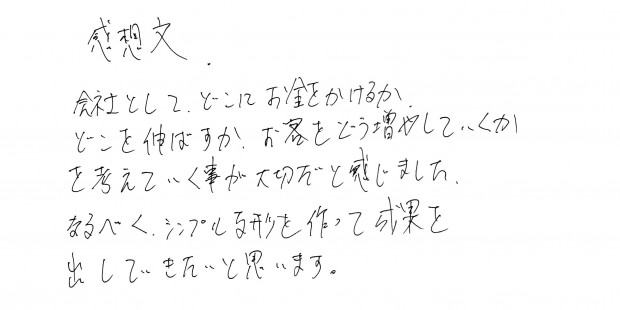 感想文.
会社として、どこにお金をかけるか、
どこを伸ばすか、お客をどう増やしていくか
を考えていく事が大切だと感じました、
なるべく、シンプルな形を作って成果を
出していきたいと思います。